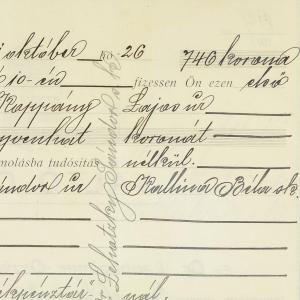 október hó 26 746 korona
10-én fizessen Ön ezen első
Koppány Lajos úr
venhat koronát
molásba tudósítás nélkül.
ándor úr Kallina Béla sk.
nál.
Lehotzky Sándor s. k.